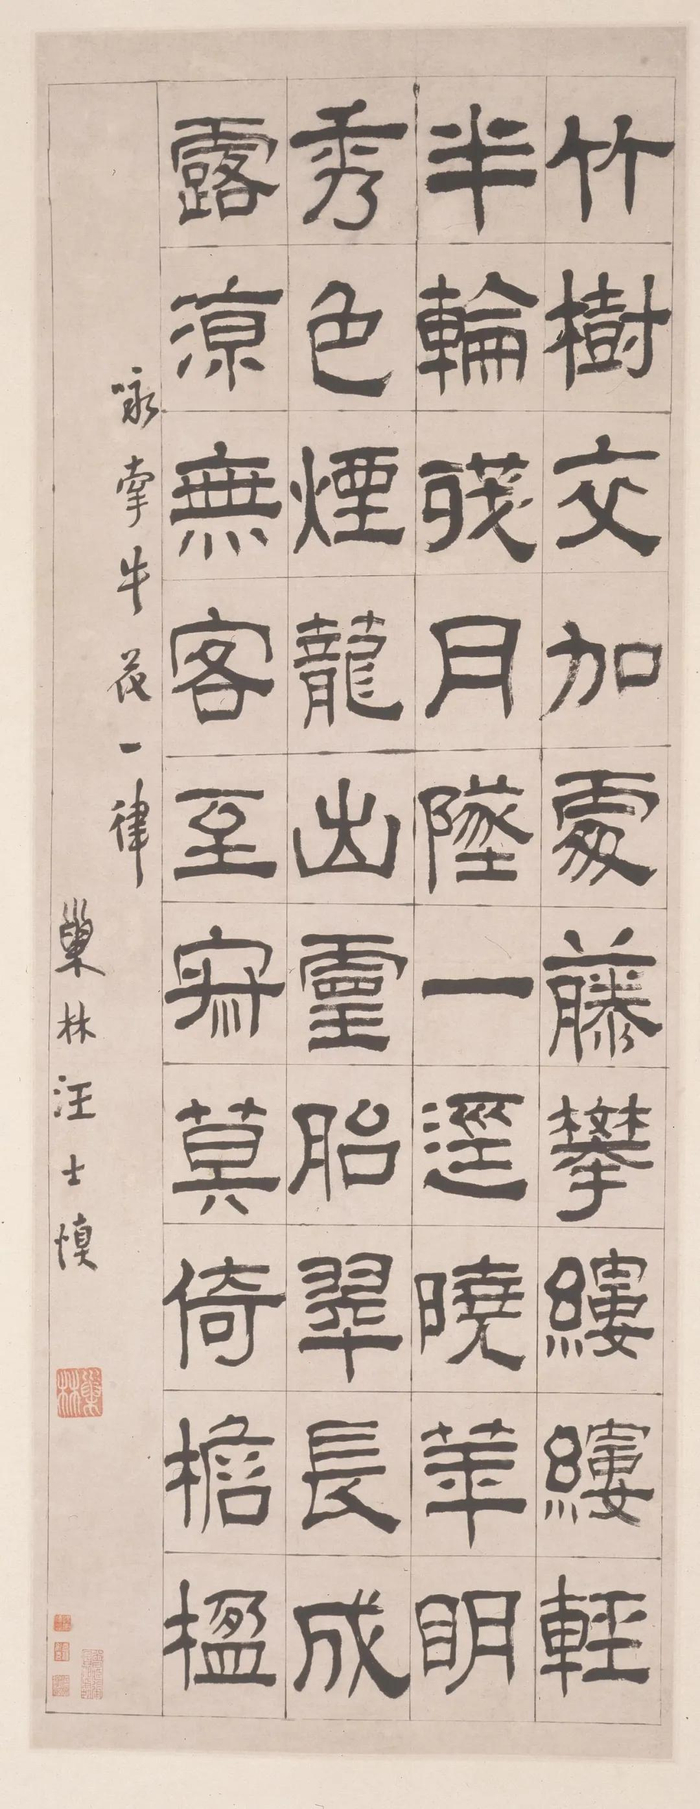 竹樹交加處藤攀縷縷輕
半輪殘月墜一逕曉華明
秀色煙蘢出靈胎翠長成
露涼無客至寂莫倚檐楹
咏牽牛花一律
巢林汪士慎
巢林